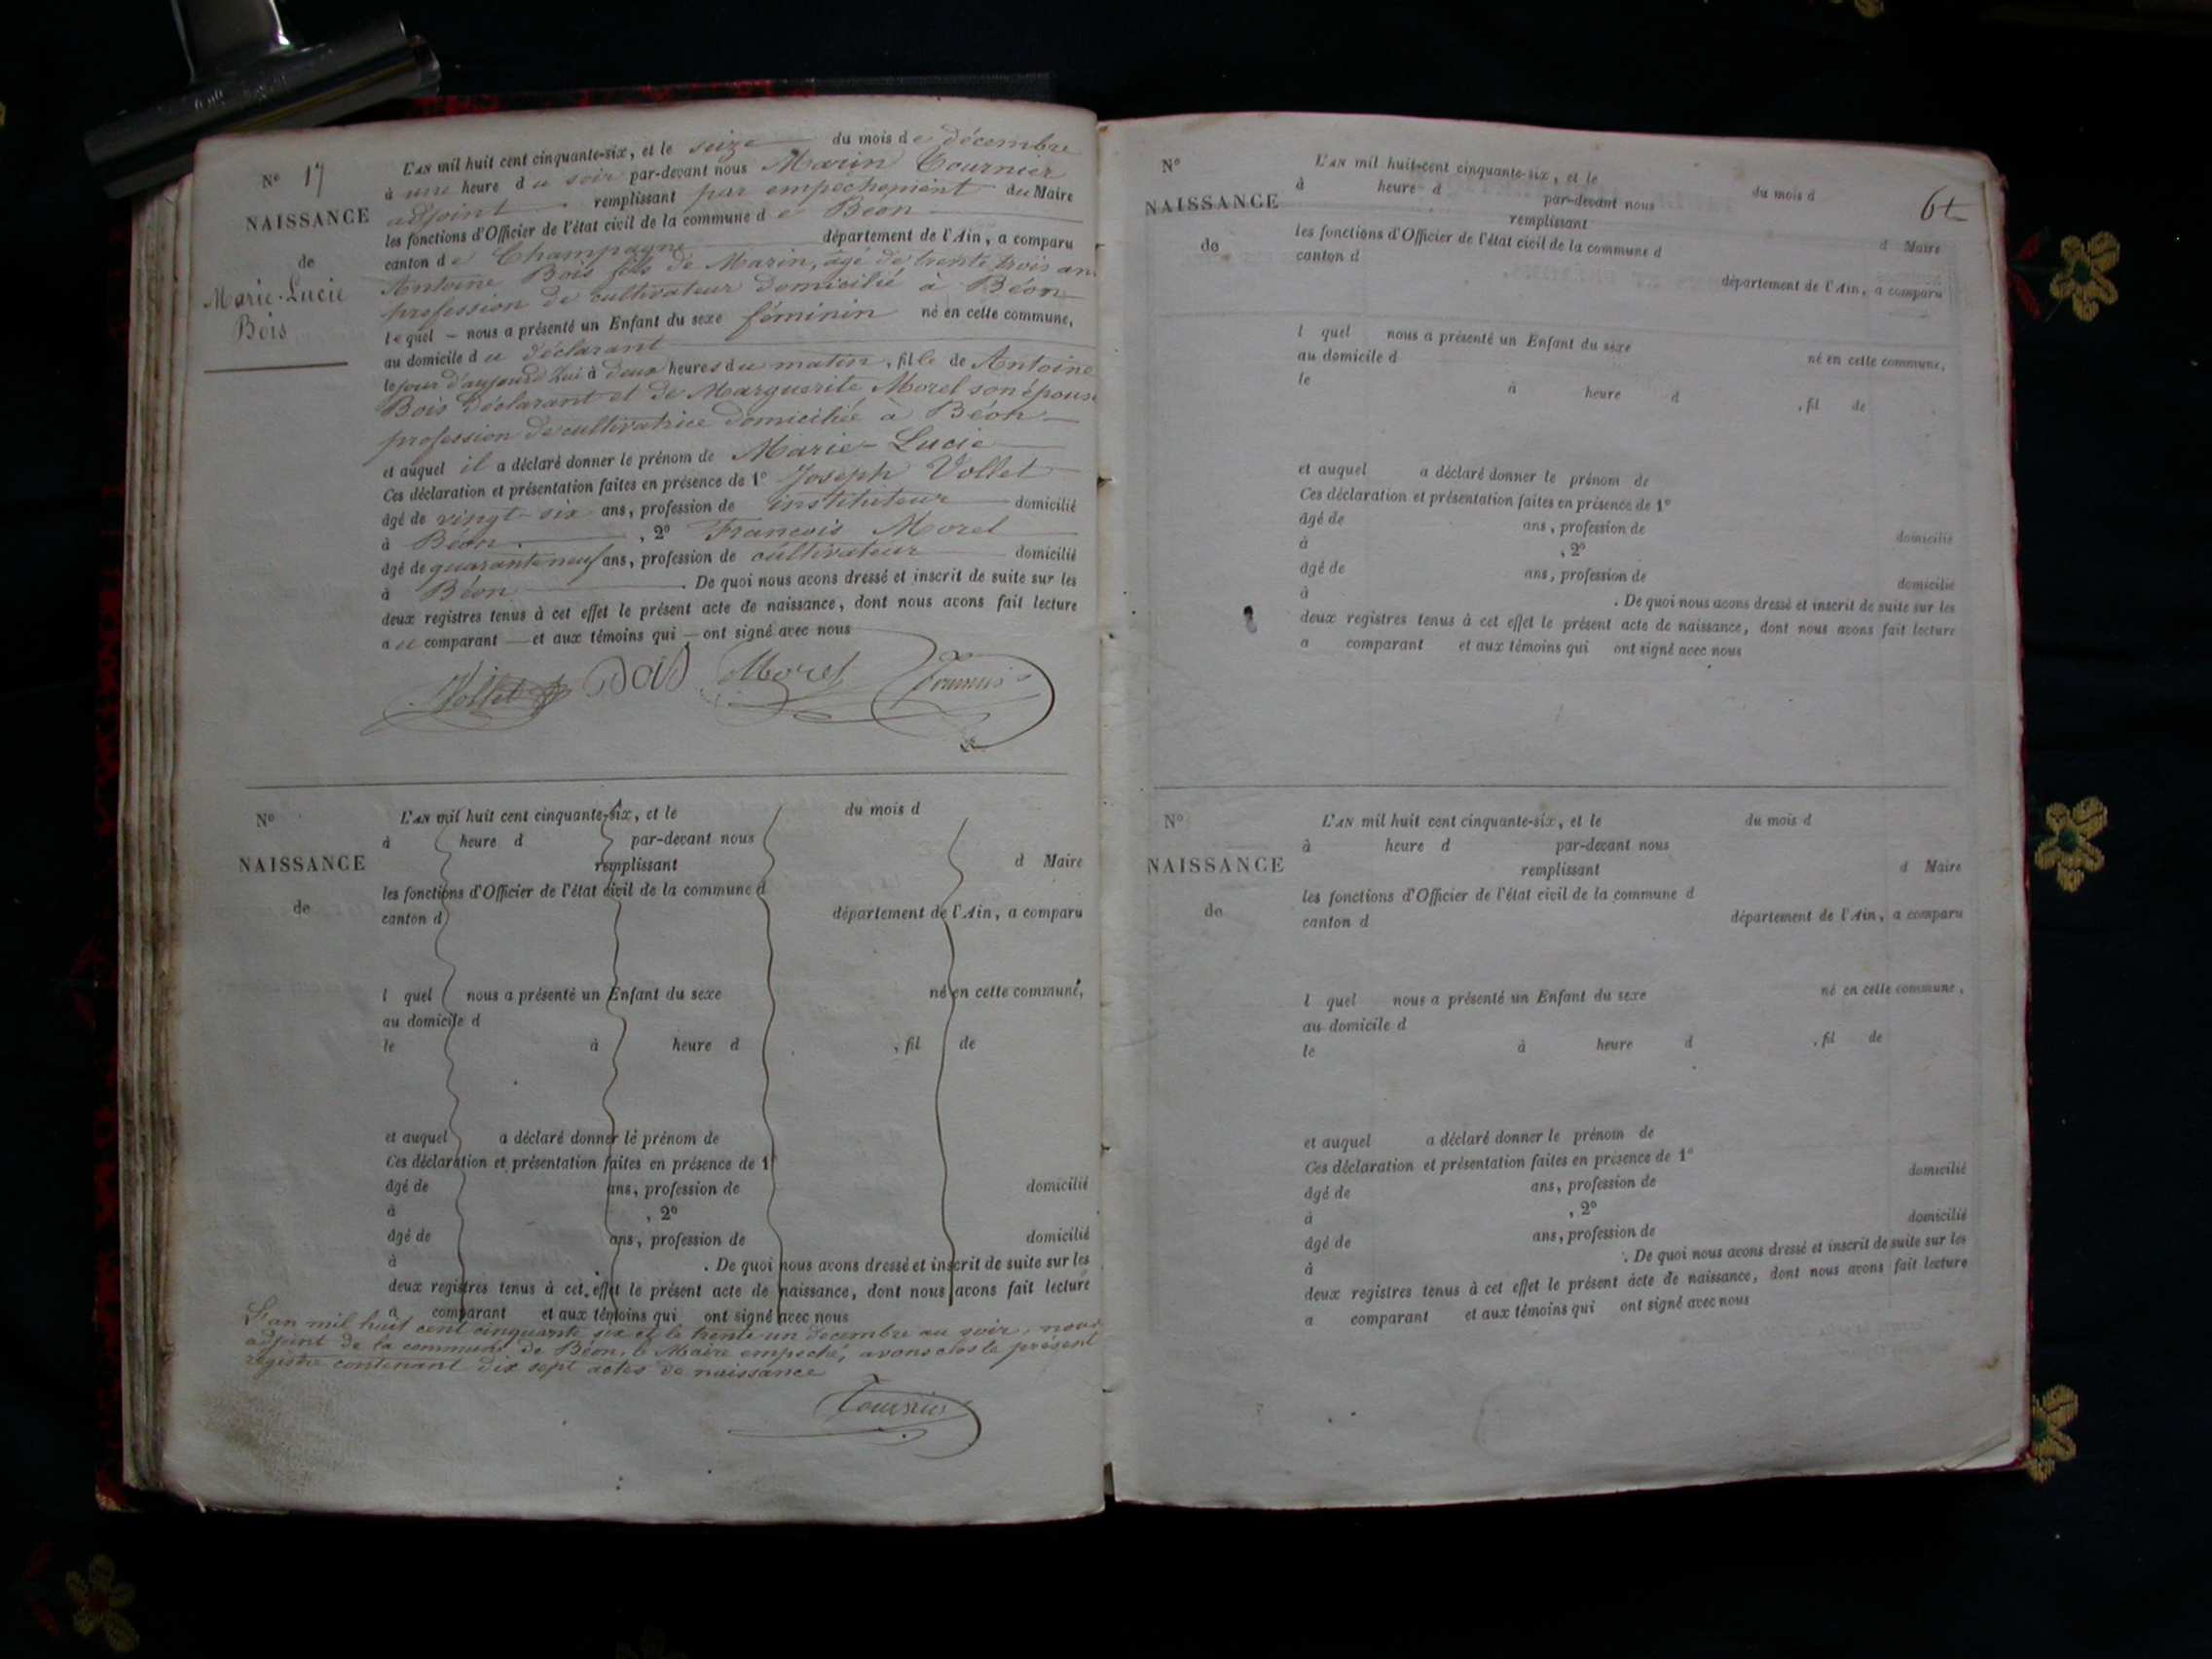 N° 17
NAISSANCE
de
Marie-Lucie
Bois
L'AN mil huit cent cinquante-six, et le seize du mois de décembre
à une heure du soir par-devant nous Marin Tournier
adjoint remplissant par empechement du Maire
les fonctions d'Officier de l'état civil de la commune de Béon
canton de Champagne département de l'Ain, a comparu
Antoine Bois fils de Marin, âgé de trente trois ans
profession de cultivateur domicilié à Béon
lequel – nous a présenté un Enfant du sexe féminin né en cette commune,
au domicile du déclarant
le jour d'aujourd'hui à deux heures du matin, fille de Antoine
Bois déclarant et de Marguerite Morel son épouse
profession de cultivatrice domiciliée à Béon
et auquel il a déclaré donner le prénom de Marie-Lucie
Ces déclaration et présentation faites en présence de 1° Joseph Vollet
âgé de vingt-six ans, profession de instituteur domicilié
à Béon, 2° Francois Morel
âgé de quarante neuf ans, profession de cultivateur domicilié
à Béon. De quoi nous avons dressé et inscrit de suite sur les
deux registres tenus à cet effet le présent acte de naissance, dont nous avons fait lecture
au comparant — et aux témoins qui — ont signé avec nous
Vollet Bois Morel Tournier
N°
NAISSANCE
de
L'AN mil huit cent cinquante-six, et le du mois d
à heure d par-devant nous
remplissant d Maire
les fonctions d'Officier de l'état civil de la commune d
canton d département de l'Ain, a comparu
l quel nous a présenté un Enfant du sexe né en cette commune,
au domicile d
le à heure d , fil de
et auquel a déclaré donner le prénom de
Ces déclaration et présentation faites en présence de 1°
âgé de ans, profession de domicilié
à , 2°
âgé de ans, profession de domicilié
à . De quoi nous avons dressé et inscrit de suite sur les
deux registres tenus à cet effet le présent acte de naissance, dont nous avons fait lecture
a comparant et aux témoins qui ont signé avec nous
L'an mil huit cent cinquante six et le trente un decembre au soir, nous
adjoint de la commune de Béon, le Maire empeché, avons clos le présent
registre contenant dix sept actes de naissance
Tournier
6t
N°
NAISSANCE
de
L'AN mil huit cent cinquante-six, et le du mois d
à heure d par-devant nous
remplissant d Maire
les fonctions d'Officier de l'état civil de la commune d
canton d département de l'Ain, a comparu
l quel nous a présenté un Enfant du sexe né en cette commune,
au domicile d
le à heure d , fil de
et auquel a déclaré donner le prénom de
Ces déclaration et présentation faites en présence de 1°
âgé de ans, profession de domicilié
à , 2°
âgé de ans, profession de domicilié
à . De quoi nous avons dressé et inscrit de suite sur les
deux registres tenus à cet effet le présent acte de naissance, dont nous avons fait lecture
a comparant et aux témoins qui ont signé avec nous
N°
NAISSANCE
de
L'AN mil huit cent cinquante-six, et le du mois d
à heure d par-devant nous
remplissant d Maire
les fonctions d'Officier de l'état civil de la commune d
canton d département de l'Ain, a comparu
l quel nous a présenté un Enfant du sexe né en cette commune,
au domicile d
le à heure d , fil de
et auquel a déclaré donner le prénom de
Ces déclaration et présentation faites en présence de 1°
âgé de ans, profession de domicilié
à , 2°
âgé de ans, profession de domicilié
à . De quoi nous avons dressé et inscrit de suite sur les
deux registres tenus à cet effet le présent acte de naissance, dont nous avons fait lecture
a comparant et aux témoins qui ont signé avec nous